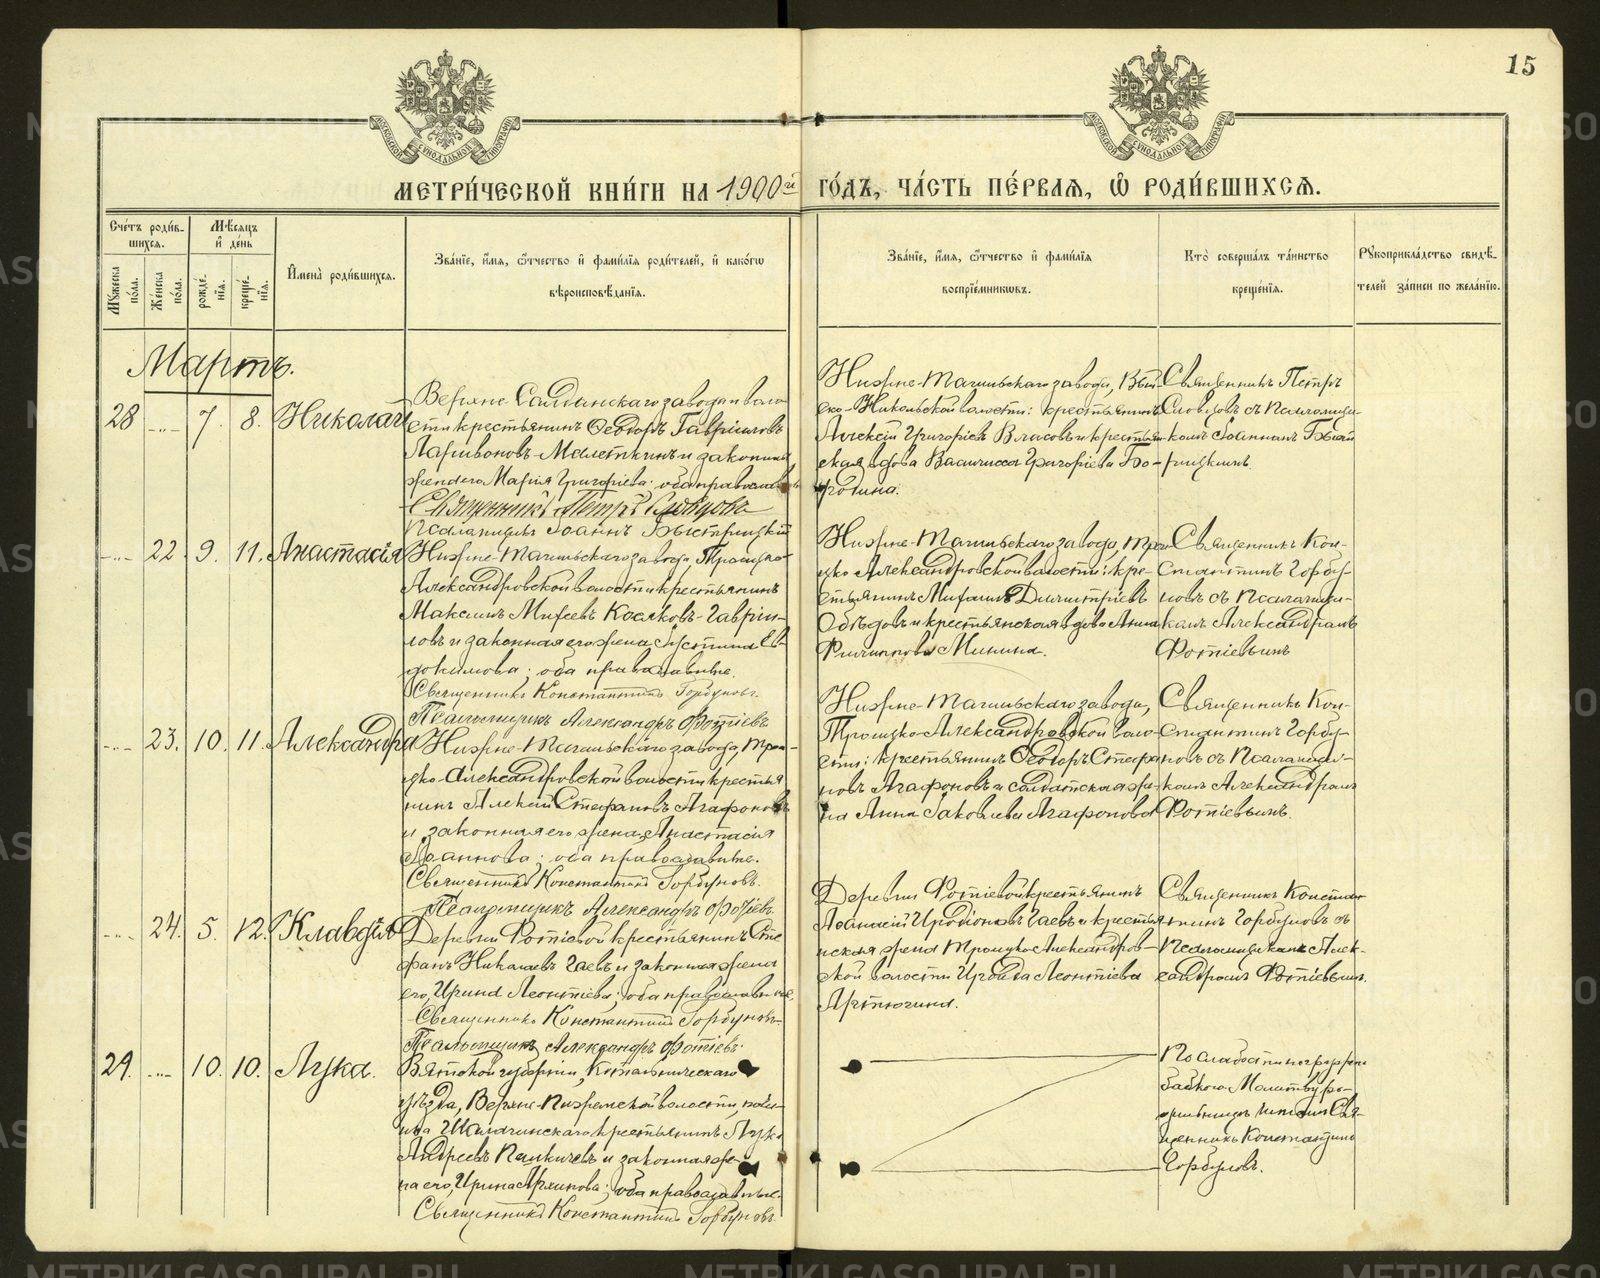 15
МЕТРИ́ЧЕСКОЙ КНИ́ГИ НА 1900й ГО́ДЪ, ЧА́СТЬ ПЕ́РВАЯ, Ѡ҆ РОДИ́ВШИХСЯ.
Сче́тъ роди́в-
шихся.
Мѣ́сяцъ
и҆ де́нь
Му́жеска по́ла.
Же́нска по́ла.
рожде́-нїя.
креще́-нїя.
И҆мена̀ роди́вшихся.
Зва́нїе, и҆́мя, ѻ҆́тчество и҆ фами́лїя роди́телей, и҆ како́гѡ
вѣроисповѣ́данїя.
Зва́нїе, и҆́мя, ѻ҆́тчество и҆ фами́лїя
воспрїе́мникѡвъ.
Кто̀ соверша́лъ та́инство
креще́нїя.
Рꙋкоприкла́дство свидѣ́-
телей за́писи по жела́нїю.
Мартъ.
28 -"- 7. 8. Николай
Верхне-Салдинскаго завода и воло-
сти крестьянинъ Ѳеодоръ Гавріиловъ
и законная
жена его Марія Григоріева: оба православ
Священникъ Петръ Словцовъ
Псаломщикъ Іоаннъ Быстрицкій
Нижне-Тагильскаго завода, Вый-
ско-Никольской волости: крестьянинъ
Алексій Григоріевъ Власовъ и крестьян-
ская вдова Василисса Григоріева Бо-
родина.
Священникъ Петръ
Словцовъ съ Псаломщи-
комъ Іоанномъ Быст-
рицкимъ
-"- 22 9. 11. Анастасія
Нижне-Тагильскаго завода Троицко-
Александровской волости крестьянинъ
Максимъ Михеевъ Косяковъ-Гаври-
ловъ и законная его жена Іустина Ев-
докимова; оба православные.
Священникъ Константинъ Горбуновъ.
Псаломщикъ Александръ Фотіевъ
Нижне-Тагильскаго завода, Трои-
цко-Александровской волости: кре-
стьянинъ Михаилъ Димитріевъ
Обѣдовъ и крестьянская вдова Анна
Филиппова Минина.
Священникъ Кон-
стантинъ Горбу-
новъ съ Псаломщи-
комъ Александромъ
Фотіевымъ
-"- 23. 10. 11. Александра
Нижне-Тагильскаго завода, Трои-
цко-Александровской волости крестья-
нинъ Алексій Стефановъ Агафоновъ
и законная его жена, Анастасія
Іоаннова; оба православные.
Священникъ Константинъ Горбуновъ.
Псаломщикъ Александръ Фотіевъ
Нижне-Тагильскаго завода,
Троицко-Александровской воло-
сти: крестьянинъ Ѳеодоръ Стефа-
новъ Агафоновъ и солдатская же-
на Анна Іаковлева Агафонова
Священникъ Кон-
стантинъ Горбу-
новъ съ Псаломщи-
комъ Александромъ
Фотіевымъ.
-"- 24. 5. 12. Клавдія
Деревни Фотіевой крестьянинъ Сте-
фанъ Николаевъ Гаевъ и законная жена
его, Ирина Леонтіева; оба православные.
Священникъ Константинъ Горбуновъ
Псаломщикъ Александръ Фотіевъ.
Деревни Фотіевой крестьянинъ
Аѳанасій Иродіоновъ Гаевъ и крестья-
нская жена Троицко-Александров-
ской волости Ираида Леонтіева
Артюгина.
Священникъ Констан-
тинъ Горбуновъ съ
Псаломщикомъ Алек-
сандромъ Фотіевымъ.
29. -"- 10. 10. Лука.
Вятской губерніи, Котельническаго
уѣзда, Верхне-Пижемской волости,
крестьянинъ Лука
Андреевъ и законная же-
на его, Ирина Архипова; оба православные.
Священникъ Константинъ Горбуновъ
По слабости погружен
бабкою. Молитву ро-
дильницѣ читалъ Свя-
щенникъ Константинъ
Горбуновъ.